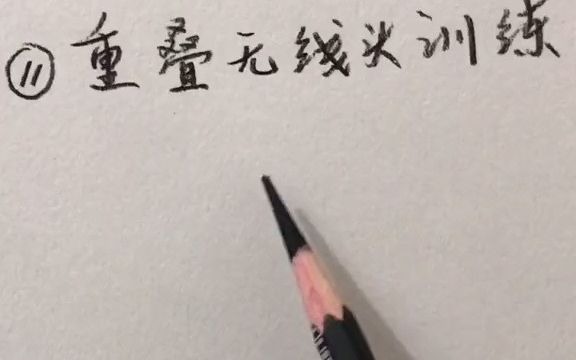 ⑪重叠无线头训练